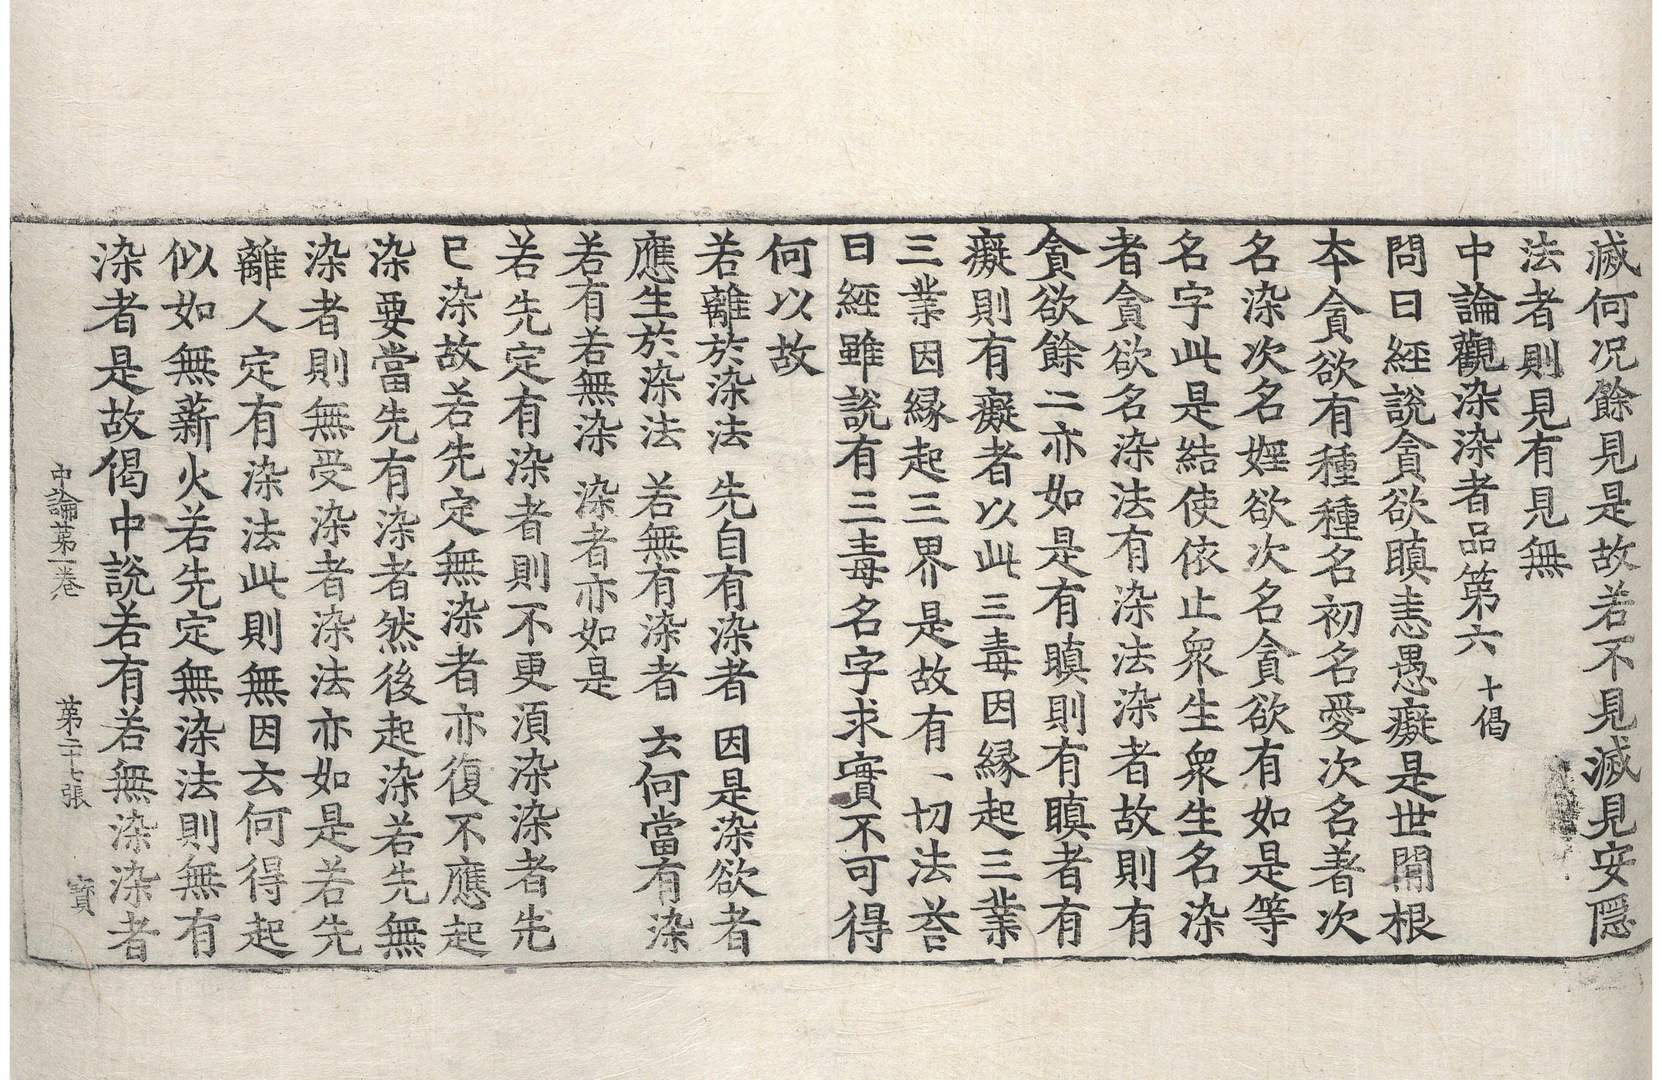 滅何况餘見是故若不見滅見安隱
法者則見有見無
中論觀染染者品第六 十偈
問曰經說貪欲瞋恚愚癡是世間根
本貪欲有種種名初名愛次名著次
名染次名婬欲次名貪欲有如是等
名字此是結使依止衆生衆生名染
者貪欲名染法有染法染者故則有
貪欲餘二亦如是有瞋則有瞋者有
癡則有癡者以此三毒因緣起三業
三業因緣起三界是故有一切法荅
曰經雖說有三毒名字求實不可得
何以故
若離於染法 先自有染者 因是染欲者
應生於染法 若無有染者 云何當有染
若有若無染 染者亦如是
若先定有染者則不更湏染染者先
已染故若先定無染者亦復不應起
染要當先有染者然後起染若先無
染者則無受染者染法亦如是若先
離人定有染法此則無因云何得起
似如無薪火若先定無染法則無有
染者是故偈中說若有若無染染者
中論第一卷 第二十七張 寶